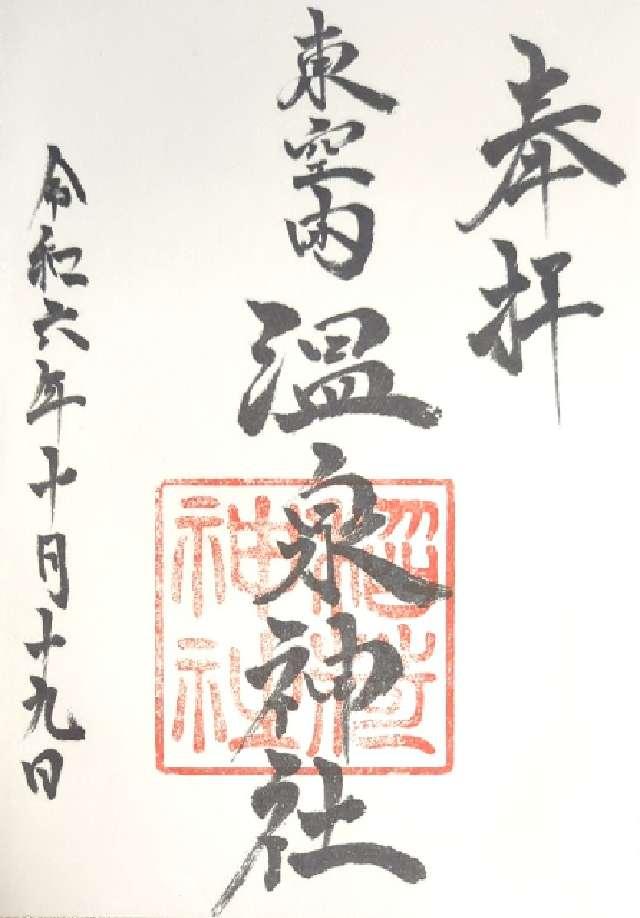 奉拝
東空内
温泉神社
令和六年十月十九日
神社